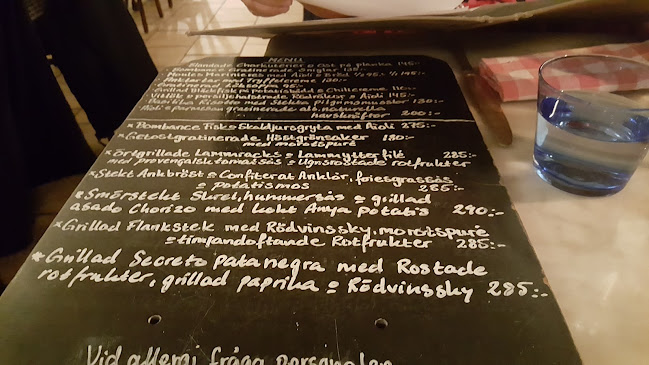 MENU
Blandade Charkuterier o Ost på planka 145:-
Bombance Gratinerade Sniglar 135:-
Moules Marinieres med Aioli o Bröd 1/2 95:- 1/1 145:-
med Tryffelcreme 130:-
95:-
Grillad Bläckfisk på o Chilicreme
Rödräkor o Aioli 145:-
Risotto med Stekta Pilgrimsmusslor 130:-
Aioli o parmesangratinerade alt. naturella
havskräftor 200:-
*Bombance Fisk o Skaldjursgryta med Aioli 275:-
*Getostgratinerade Höstgrönsaker 180:-
med morotspuré
*Örtgrillade Lammracks o Lammytterfilé 285:-
med provençalsk tomatsås o Ugnsrostade rotfrukter
*Stekt Ankbröst o Confiterat Anklår, foiegrassås
o Potatismos 265:-
*Smörstekt Skrei, hummersås o grillad
asado Chorizo med kokt Anya potatis 290:-
*Grillad Flankstek med Rödvinssky, morotspuré
o timjandoftande Rotfrukter 285:-
*Grillad Secreto patanegra med Rostade
rotfrukter, grillad paprika o Rödvinssky 285:-
Vid allergi fråga personalen